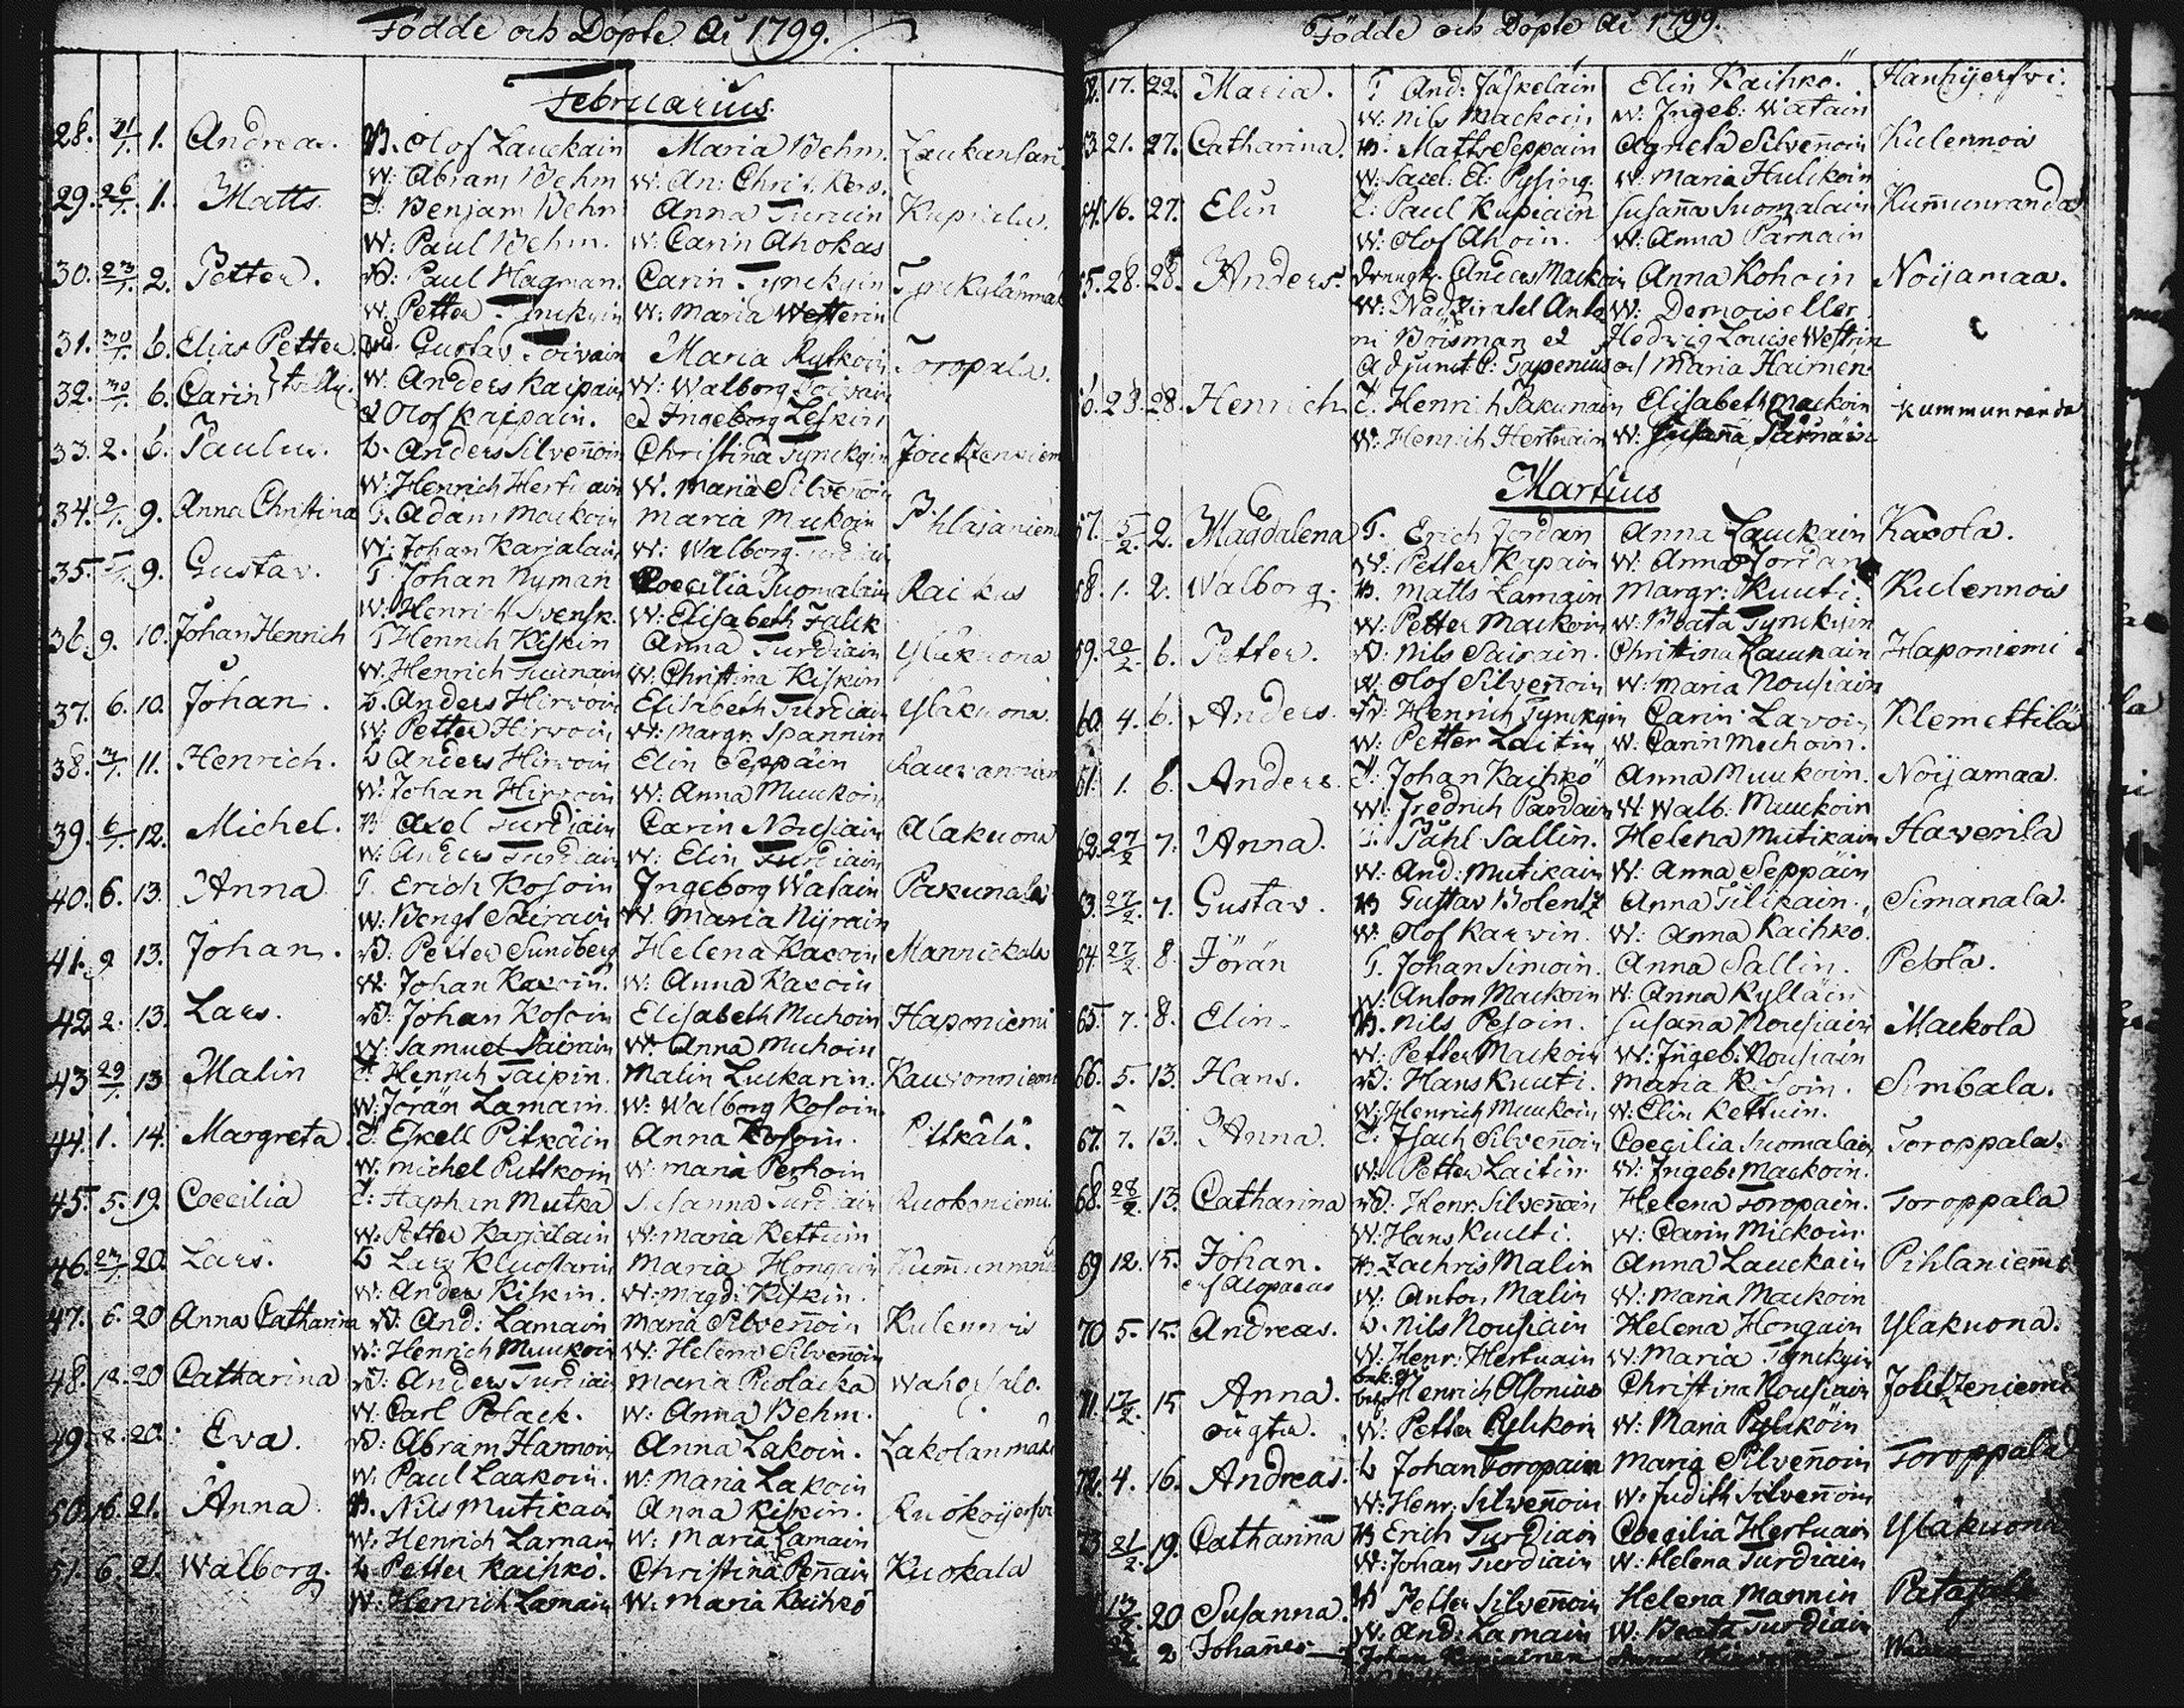 Födde och Döpte Ar 1799.
Februarius
28. 31/1. 1. Andreas. B. Olof Lauckain Maria Behm. Laukansari
W: Abram Behm W: An: Christ.
29. 26/1. 1. Matts. T: Benjam Behm Anna Turuin
W: Paul Behm. W: Carin Ahokas
30. 23/1. 2. Petter. B: Paul Hagman. Carin Tynckyin
W. Petter Tynckyin W: Maria Westerin
31. 30/1. 6. Elias Petter. Gustav Toivain Maria Rytkoin Toropala.
32. 30/1. 6. Carin W. Anders Kaipain W: Walborg Toivain
et Olof Kaipain. et Ingeborg Leskin
33. 2. 6. Paulus. b. Anders Silvenoin Christina Tynckyin Joutzeniem
W: Henrich Hertuain W. Maria Silvenoin
34. 9. Anna Christina T. Adam Mackoin Maria Mukoin
W: Johan Karjalain W: Walborg Turdiain
35. 9. Gustav. T Johan Nyman Coecilia Suomalain Raikus
W. Henrich Svensk. W: Elisabeth Falck
36. 9. 10. Johan Henrich T Henrich Kiskin Anna Turdiain Yläkuona
W. Henrich W: Christina Kiskin
37. 6. 10. Johan. b. Anders Hirvoin Elisabeth Turdiain Yläkuona.
W: Petter Hirvoin W: Margr. Spannin
38. 11. Henrich. b Anders Hirvoin Elin Seppäin
W: Johan Hirvoin W: Anna Muukoin
39. 6/1. 12. Michel. B Axel Turdiain Carin Nousiain Alakuona
W: Anders Turdiain W: Elin Turdiain
40. 6. 13. Anna T. Erich Kosoin Ingeborg Wasain
W: Bengt Sairain W. Maria Nyrain
41. 9 13. Johan. B. Petter Sundberg Helena Kaxoin Mannickala
W. Johan Kaxoin. W: Anna Kaxoin
42 2. 13. Lars. B: Johan Kosoin Elisabeth Muhoin Haponiemi
W: Samuel Sairain W: Anna Muhoin
43 29/1. 13 Malin T: Henrich Taipin. Malin Luckarin. Kauvonniemi
W: Jörän Lamain. W: Walborg Kosoin
44. 1. 14. Margreta T: Eskell Pitkäin Anna Kosoin. Pittkälä.
W. Michel Puttkoin W: Maria Perhoin
45. 5. 19. Coecilia T: Staphan Mutka Susanna Turdiain Ruokoniemi.
W: Petter Karjalain W: Maria Kettuin
46. 20. Lars. b Lars Kluostarin Maria Hongain
W: Anders Kiskin. W: Magd: Kiskin.
47. 6. 20 Anna Catharina B. And: Lamain Maria Silvenoin Kulennois
W: Henrich Muukoin W: Helena Silvenoin
48. 18. 20 Catharina B: Anders Turdiain Maria Polacka Wahersalo.
W: Carl Polack. W: Anna Behm.
49. 8. 20. Eva. B: Abram Hannoin Anna Lakoin. Lakolanmäki
W: Paul Laakoin. W: Maria Lakoin
50. 16. 21. Anna. B. Nils Mutikain Anna Kiskin. Ruokojerfvi
W: Henrich Lamain W: Maria Lamain
51. 6. 21. Walborg. b Petter Kaihko. Christina Penain Kuokala
W: Henrich Lamain W: Maria Kaihko
Födde och Döpte År 1799.
52. 17. 22. Maria. T And: Jäskeläin Elin Kaihko. Hanhijerfvi.
W: Nils Mackoin W: Ingeb: Watain
53. 21. 27. Catharina. B: Matts Seppain Agneta Silvenoin Kulennois
W: Sacel: El: Pysing. W: Maria Hulckoin
54. 16. 27. Elin T: Paul Kupiain Susanna Suomalain Kummunranda
W: Olof Ahoin. W: Anna Pärnäin
55. 28. 28. Anders. Anders Mackoin Anna Kohoin Noijamaa.
W: W: Demoiseller
Böisman et Hedvig Louise Westrin
Adjunct: Tapenius och Maria Haimen
56. 23. 28. Henrich T. Henrich Pakunain Elisabeth Mackoin Kummunranda
W: Henrich Hertuain W: Susanna Pärnäin
Martius
57. 2. Magdalena T. Erich Jordan Anna Lauckain Kaxola.
W: Petter Kapain W: Anna Jordan
58. 1. 2. Walborg. B. Matts Lamain Margr: Kuuti. Kulennois
W: Petter Mackoin W: Beata Tynckyin
59. 20/2. 6. Petter. B: Nils Sairain. Christina Lauckain Haponiemi
W. Olof Silvenoin W: Maria Nousiain
60. 4. 6. Anders. B: Henrich Tynckyin Carin Lavoin Klemettilä
W: Petter Laitin W: Carin Mechoin.
61. 1. 6. Anders. T: Johan Kaihko Anna Muukoin. Noijamaa.
W: Fredrich Pardain W: Walb: Muuckoin
62. 27/2 7. Anna. T. Påhl Sallin. Helena Mutikain Haverila
W: And: Mutikain W: Anna Seppäin
63. 27/2. 7. Gustav. B Gustav Bolentz Anna Tilikain. Simanala.
W: Olof Karvin. W: Anna Kaihko.
64 27/2. 8. Jörän T. Johan Simoin. Anna Sallin. Petola.
W: Anton Mackoin W: Anna Kylläin
65. 7. 8. Elin. B. Nils Pesoin. Susanna Nousiain Mackola
W: Petter Mackoin W: Ingeb. Nousiain
66. 5. 13. Hans. B: Hans Kuuti. Maria Simbala.
W: Henrich Muukoin W: Elin Kettuin.
67. 7. 13. Anna. T: Isach Silvenoin Coecilia Suomalain Toroppala.
W: Petter Laitin W: Ingeb: Mackoin.
68. 28/2. 13. Catharina B: Henr: Silvenoin Helena Toropain. Toroppala
W: Hans Kuuti. W: Carin Mickoin
69 12. 15. Johan. B. Zachris Malin Anna Lauckain Pihlaniemi
W: Anton Malin W: Maria Mackoin
70 5. 15. Andreas. b. Nils Nousiain Helena Hongain Ylakuona.
W: Henr: Hertuain W: Maria Tynckyin
71. 17/2. 15 Anna. Henrich Olsonius Christina Nousiain Joutzeniemi
oägta. W: Petter Pylckoin W: Maria Pylckoin
72. 4. 16. Andreas. b Johan Toropain Maria Silvenoin Toroppala
W: Henr: Silvenoin W: Judith Silvenoin
73 21/2. 19. Catharina B Erich Turdiain Coecilia Hertuain Yläkuona
W: Johan Turdiain W: Helena Turdiain
20 Susanna. B Petter Silvenoin Helena Mannin
W: And: Lamain W: Beata Turdiain
2 Johannes Johan